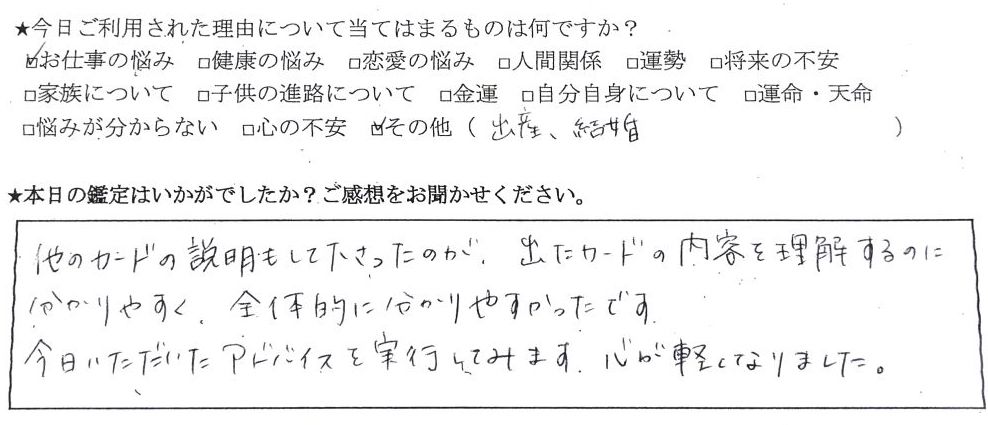 ★今日ご利用された理由について当てはまるものは何ですか？
☑お仕事の悩み □健康の悩み □恋愛の悩み □人間関係 □運勢 □将来の不安
□家族について □子供の進路について □金運 □自分自身について □運命・天命
□悩みが分からない □心の不安 ☑その他（ 出産、結婚 ）
★本日の鑑定はいかがでしたか？ご感想をお聞かせください。
他のカードの説明もして下さったのが、出たカードの内容を理解するのに
分かりやすく、全体的に分かりやすかったです。
今日いただいたアドバイスを実行してみます。心が軽くなりました。